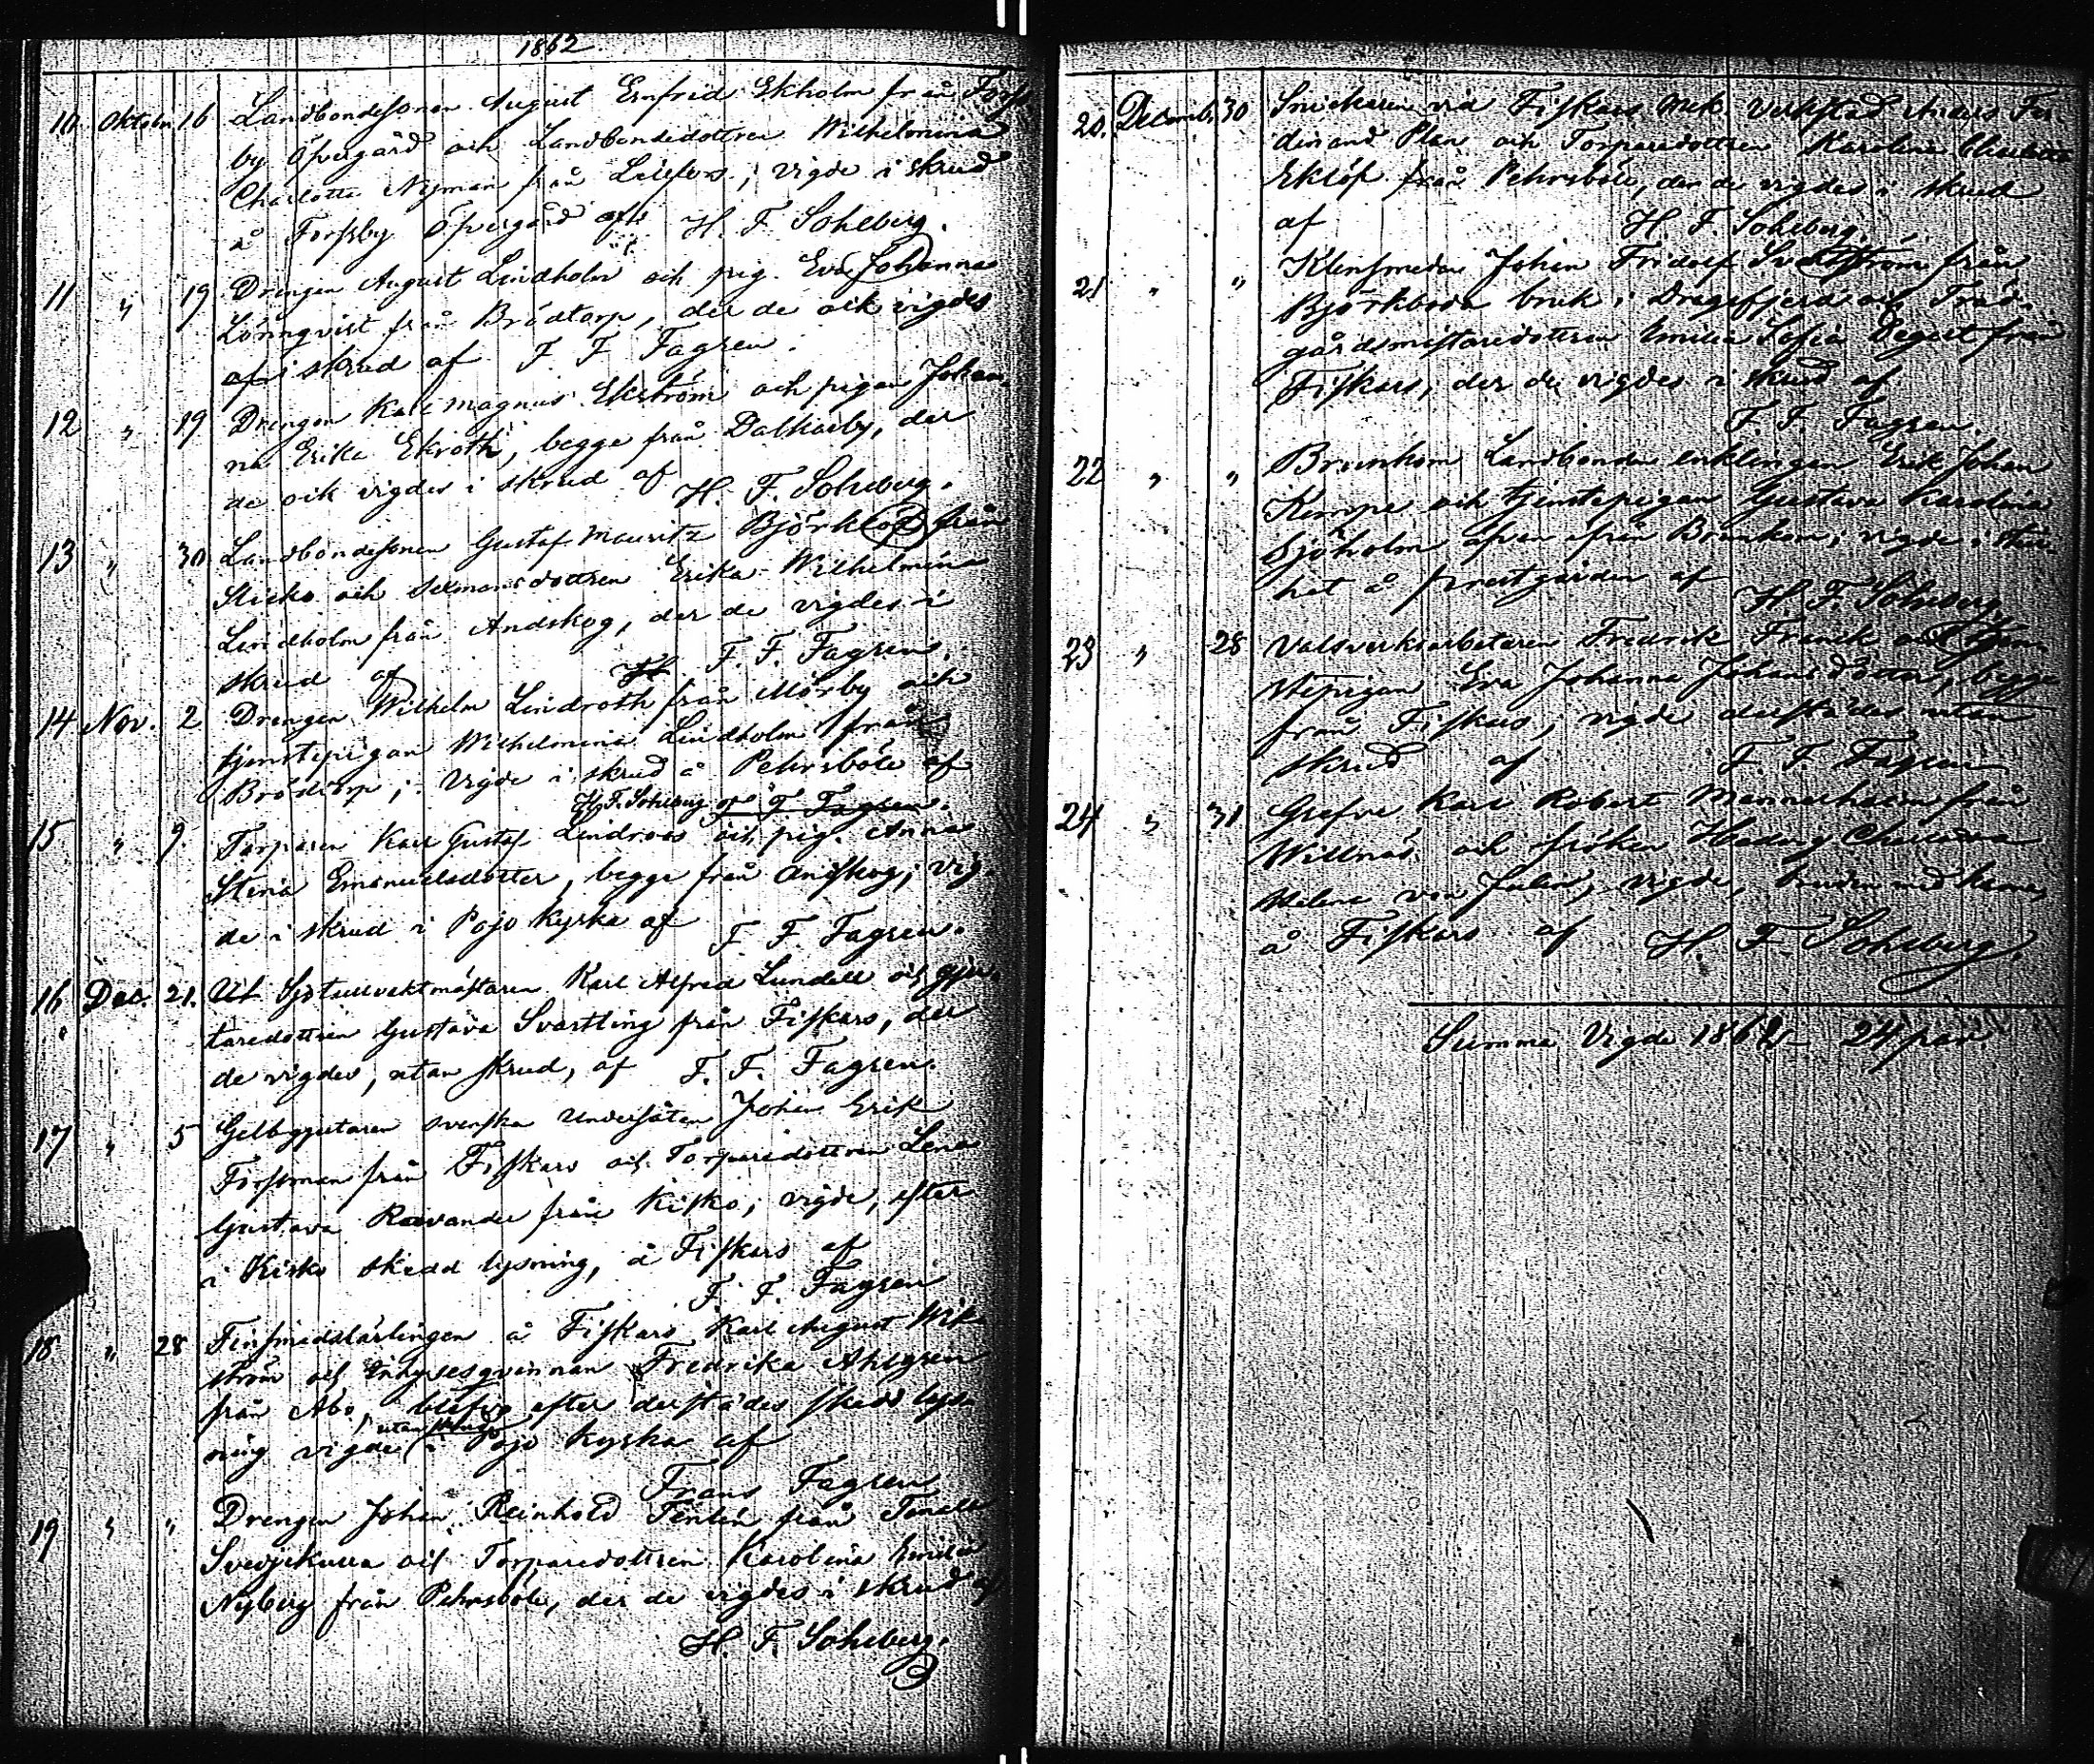 1862
10. Oktober 16 Landbondesonen August Ernfrid Ekholm från Forss
by Öfvergård och Landbondedottren Wilhelmina
Charlotta Nyman från Lillfors; vigde i skrud
å Forssby Öfvergård af H. F. Sohlberg.
11 " 19 Drengen August Lindholm och pig. Eva Johanna
Lönnqvist från Brödtorp, der de ock vigdes
af i skrud af F. F. Fagrén.
12 " 19 Drengen Karl Magnus Ekström och pigan Johan-
na Erika Ekroth, begge från Dalkarby, der
de ock vigdes i skrud af H. F. Sohlberg.
13 " 30 Landbondesonen Gustaf Mauritz Björklöf från
Sticko och Dottren Erika Wilhelmina
Lindholm från Andskog, der de vigdes i
skrud af F. F. Fagrén.
14 Nov. 2 Drengen Wilhelm Lindroth från Mörby och
tjenstepigan Wilhelmina Lindholm från
Brödtorp; vigde i skrud å Pehrsböle af
H. F. Sohlberg af F. F. Fagrén.
15 " 9. Torparen Karl Gustaf Lindroos och pig. Anna
Stina Emanuelsdotter, begge från Anskog; vig-
de i skrud i Pojo Kyrka af F. F. Fagrén.
16 Dec. 21. Ut Sjötullvaktmästaren Karl Alfred Lundell och gju-
taredottren Gustava Svartling från Fiskars, der
de vigdes, utan skrud, af F. F. Fagrén.
17 " 5 Gelbgjutaren svenska undersåten Johan Erik
Forssman från Fiskars och Torparedottren Lena
Gustava Ravander från Kisko; vigde, efter
i Kisko skedd lysning, å Fiskars af
F. F. Fagrén
18 " 28 Finsmedslärlingen å Fiskars Karl August Wik
ström och Inhysesqvinnan Fredrika Ahlgrén
från Åbo, blefvo efter derstädes skedd lys-
utan skrud
ning vigde i Pojo Kyrka af
Frans Fagrén
19 " " Drengen Johan Reinhold Tenlén från Tenala
Svedjekulla och Torparedottren Karolina Emilia
Nyberg från Pehrsböle, der de vigdes i skrud af
H. F. Sohlberg.
20. Decemb. 30 Snickaren vid Fiskars Mek. Verkstad Anders Fer-
dinand Plan och Torparedottren Karolina Charlotta
Eklöf från Pehrsböle, der de vigdes i skrud
af H. F. Sohlberg.
21 " " Klensmeden Johan Fridolf Svartström från
Björkboda bruk i Dragsfjerd och Träd-
gårdsmästaredottren Emilia Sofia Degert från
Fiskars, der de vigdes i skrud af
F. F. Fagrén.
22 " " Brunkom Landbonde enklingen Erik Johan
Kempe och tjenstepigan Gustava Karolina
Sjöholm äfven från Brunkom; vigde i
het å prestgården af H. F. Sohlberg
23 " 28 Valsverksarbetaren Fredrik Franck och tjen-
stepigan Eva Johanna Johansdotter, begge
från Fiskars; vigde derstädes utan
skrud af F. F. Fagrén
24 " 31 Grefve Karl Robert Mannerheim från
Willnäs och fröken Hedvig Charlotta
Helena von Julin; vigde, bruden med krona,
å Fiskars af H. F. Sohlberg.
Summa Vigda 1862 – 24 par.